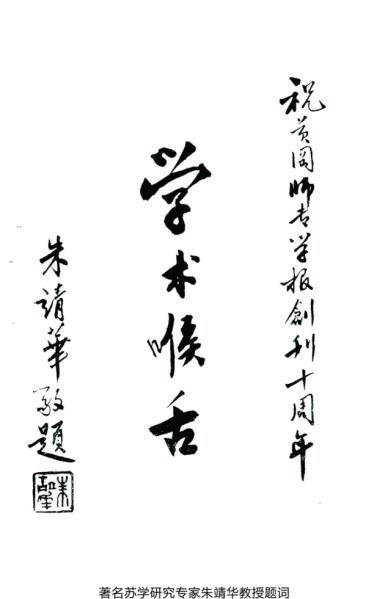 祝黄冈师专学报創刊十周年
学术喉舌
朱靖華敬題
著名苏学研究专家朱靖华教授题词